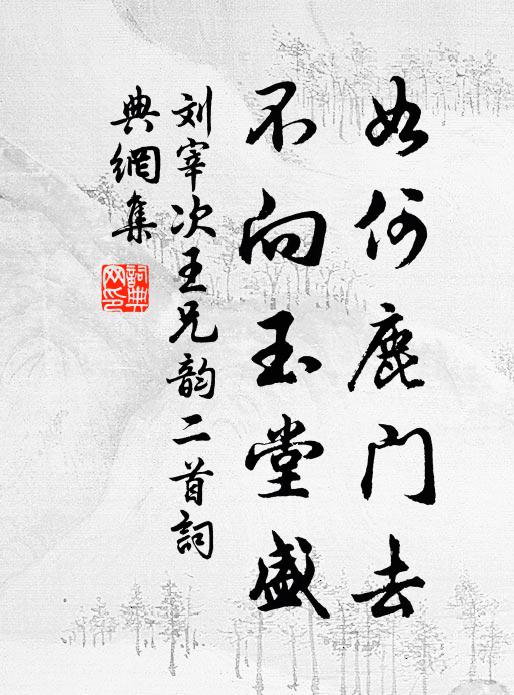 如何鹿门去
不向玉堂盛
刘宰次王兄韵二首詞
典網集
詞典网印